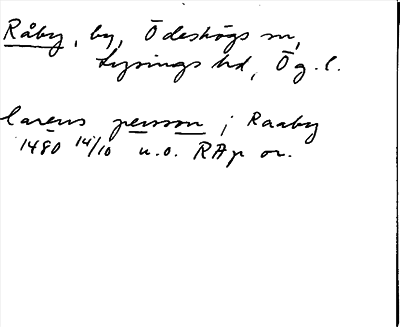 Råby, by, Ödeshögs sn,
Lysings hd, Ög. l.
larens person i Raaby
1480 14/10 u.o. RAp or.